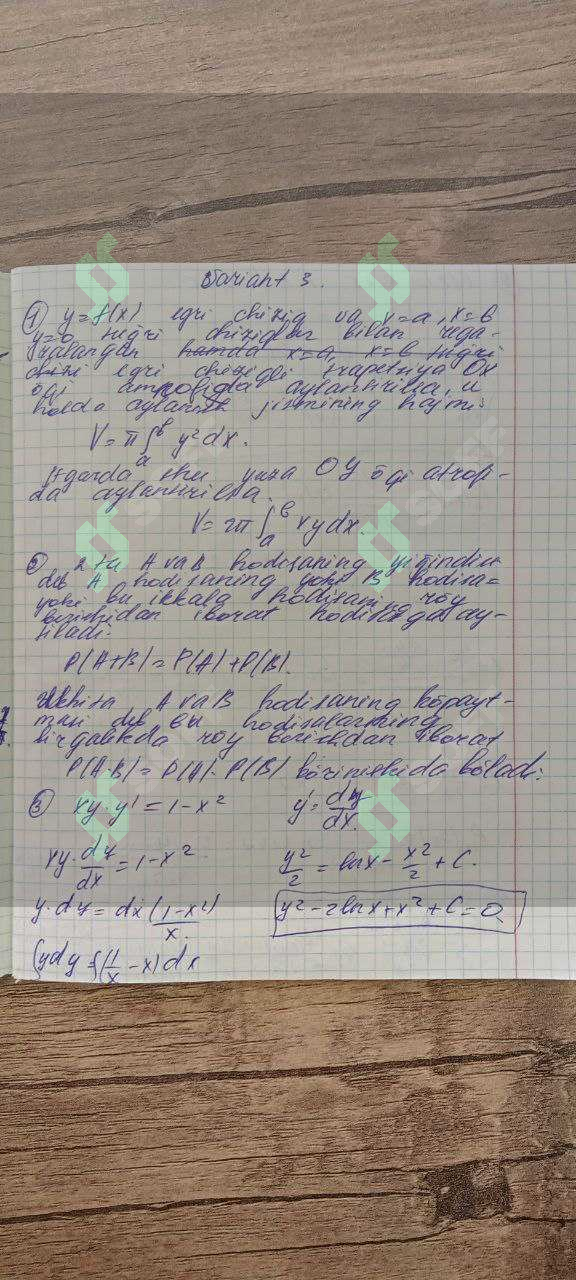 Variant 3.
① y=f(x) egri chiziq va x=a, x=b
y=0 to'g'ri chiziqlar bilan chega-
ralangan hamda x=a, x=b to'g'ri
egri chiziqli trapetsiya OX
o'qi atrofida aylantirilsa, u
holda aylanish jismining hajmi:
V=π∫ₐᵇ y²dx.
Agarda shu yuza OY o'qi atrof-
da aylantirilsa.
V=2π∫ₐᵇ xydx.
② 2 ta A va B hodisaning yig'indisi
deb A hodisaning yoki B hodisa-
yoki bu ikkala hodisani roy
berishidan iborat hodisaga ay-
tiladi.
P(A+B)=P(A)+P(B).
A va B hodisaning ko'payt-
masi deb bu hodisalarning
birgalikda roy berishdan iborat
P(A·B)=P(A)·P(B) ko'rinishida bo'ladi.
③ xy·y'=1-x² y'=dy/dx.
xy·dy/dx=1-x² y²/2=lnx-x²/2+C.
y·dy=dx(1-x²)/x. y²-2lnx+x²+C=0
∫ydy=∫(1/x-x)dx